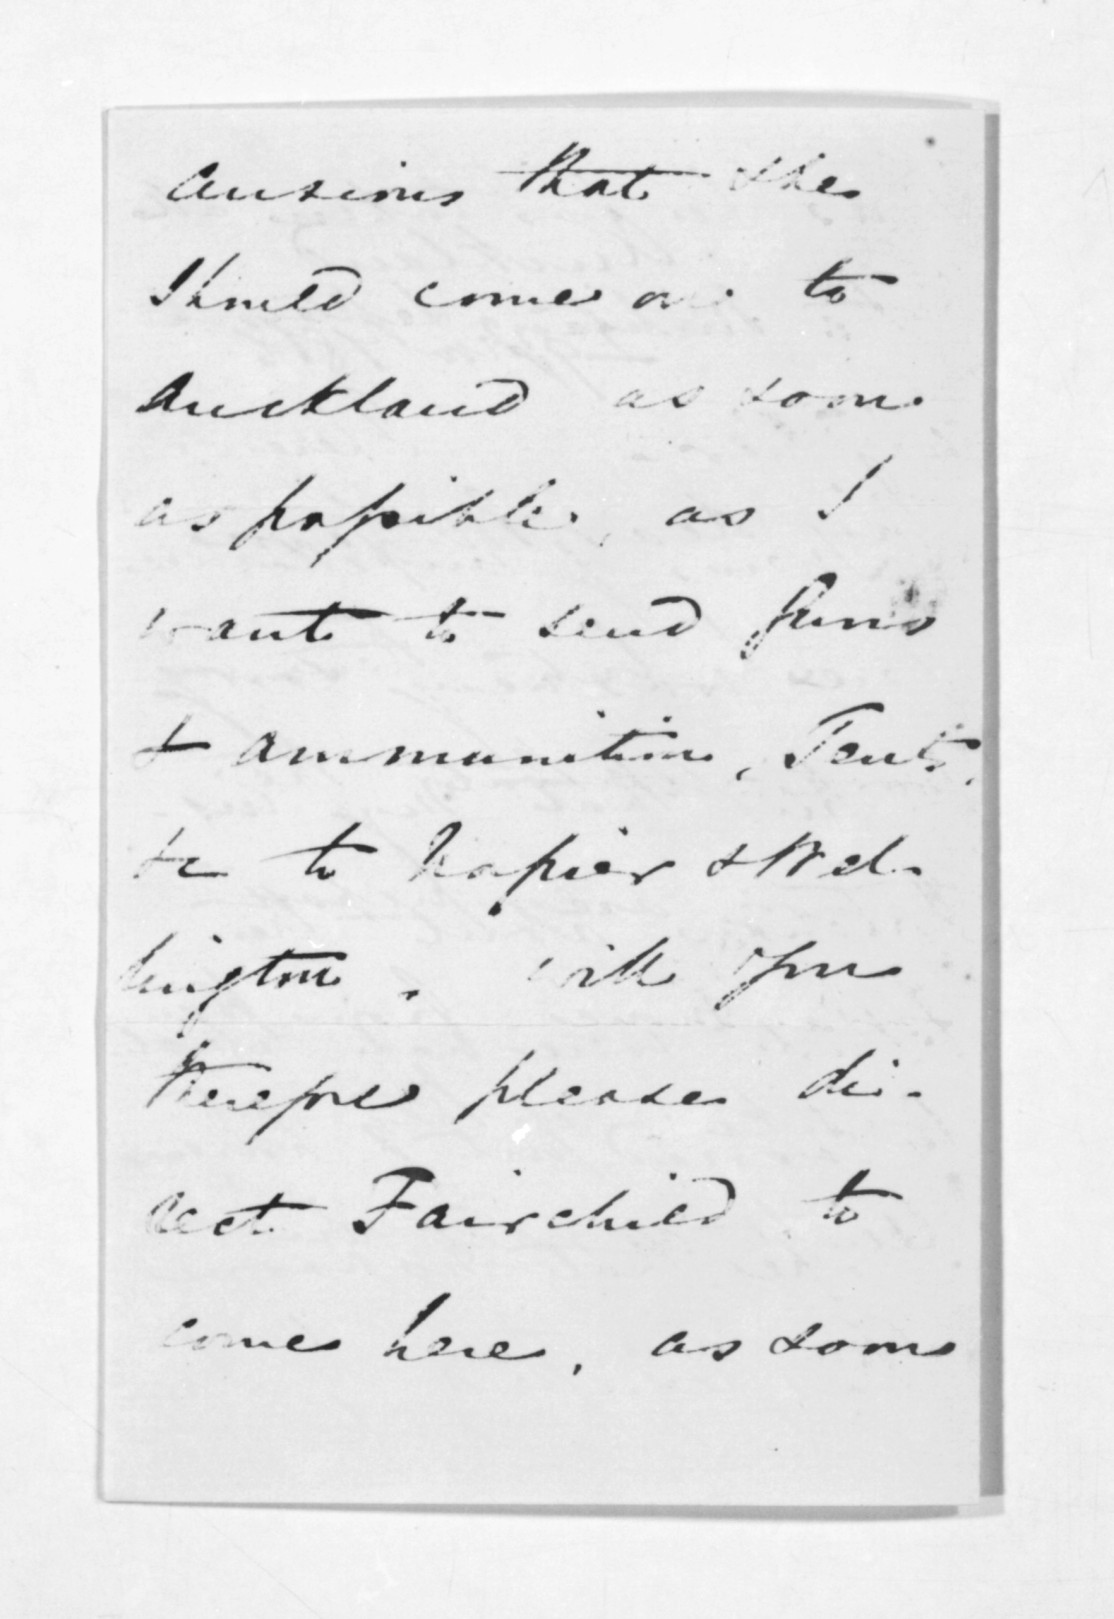 anxious that she
should come on to
Auckland as soon
as possible, as I
want to send Guns
& ammunition, Tents,
&c to Napier & Wel-
lington, will you
therefore please di-
rect Fairchild to
come here, as soon